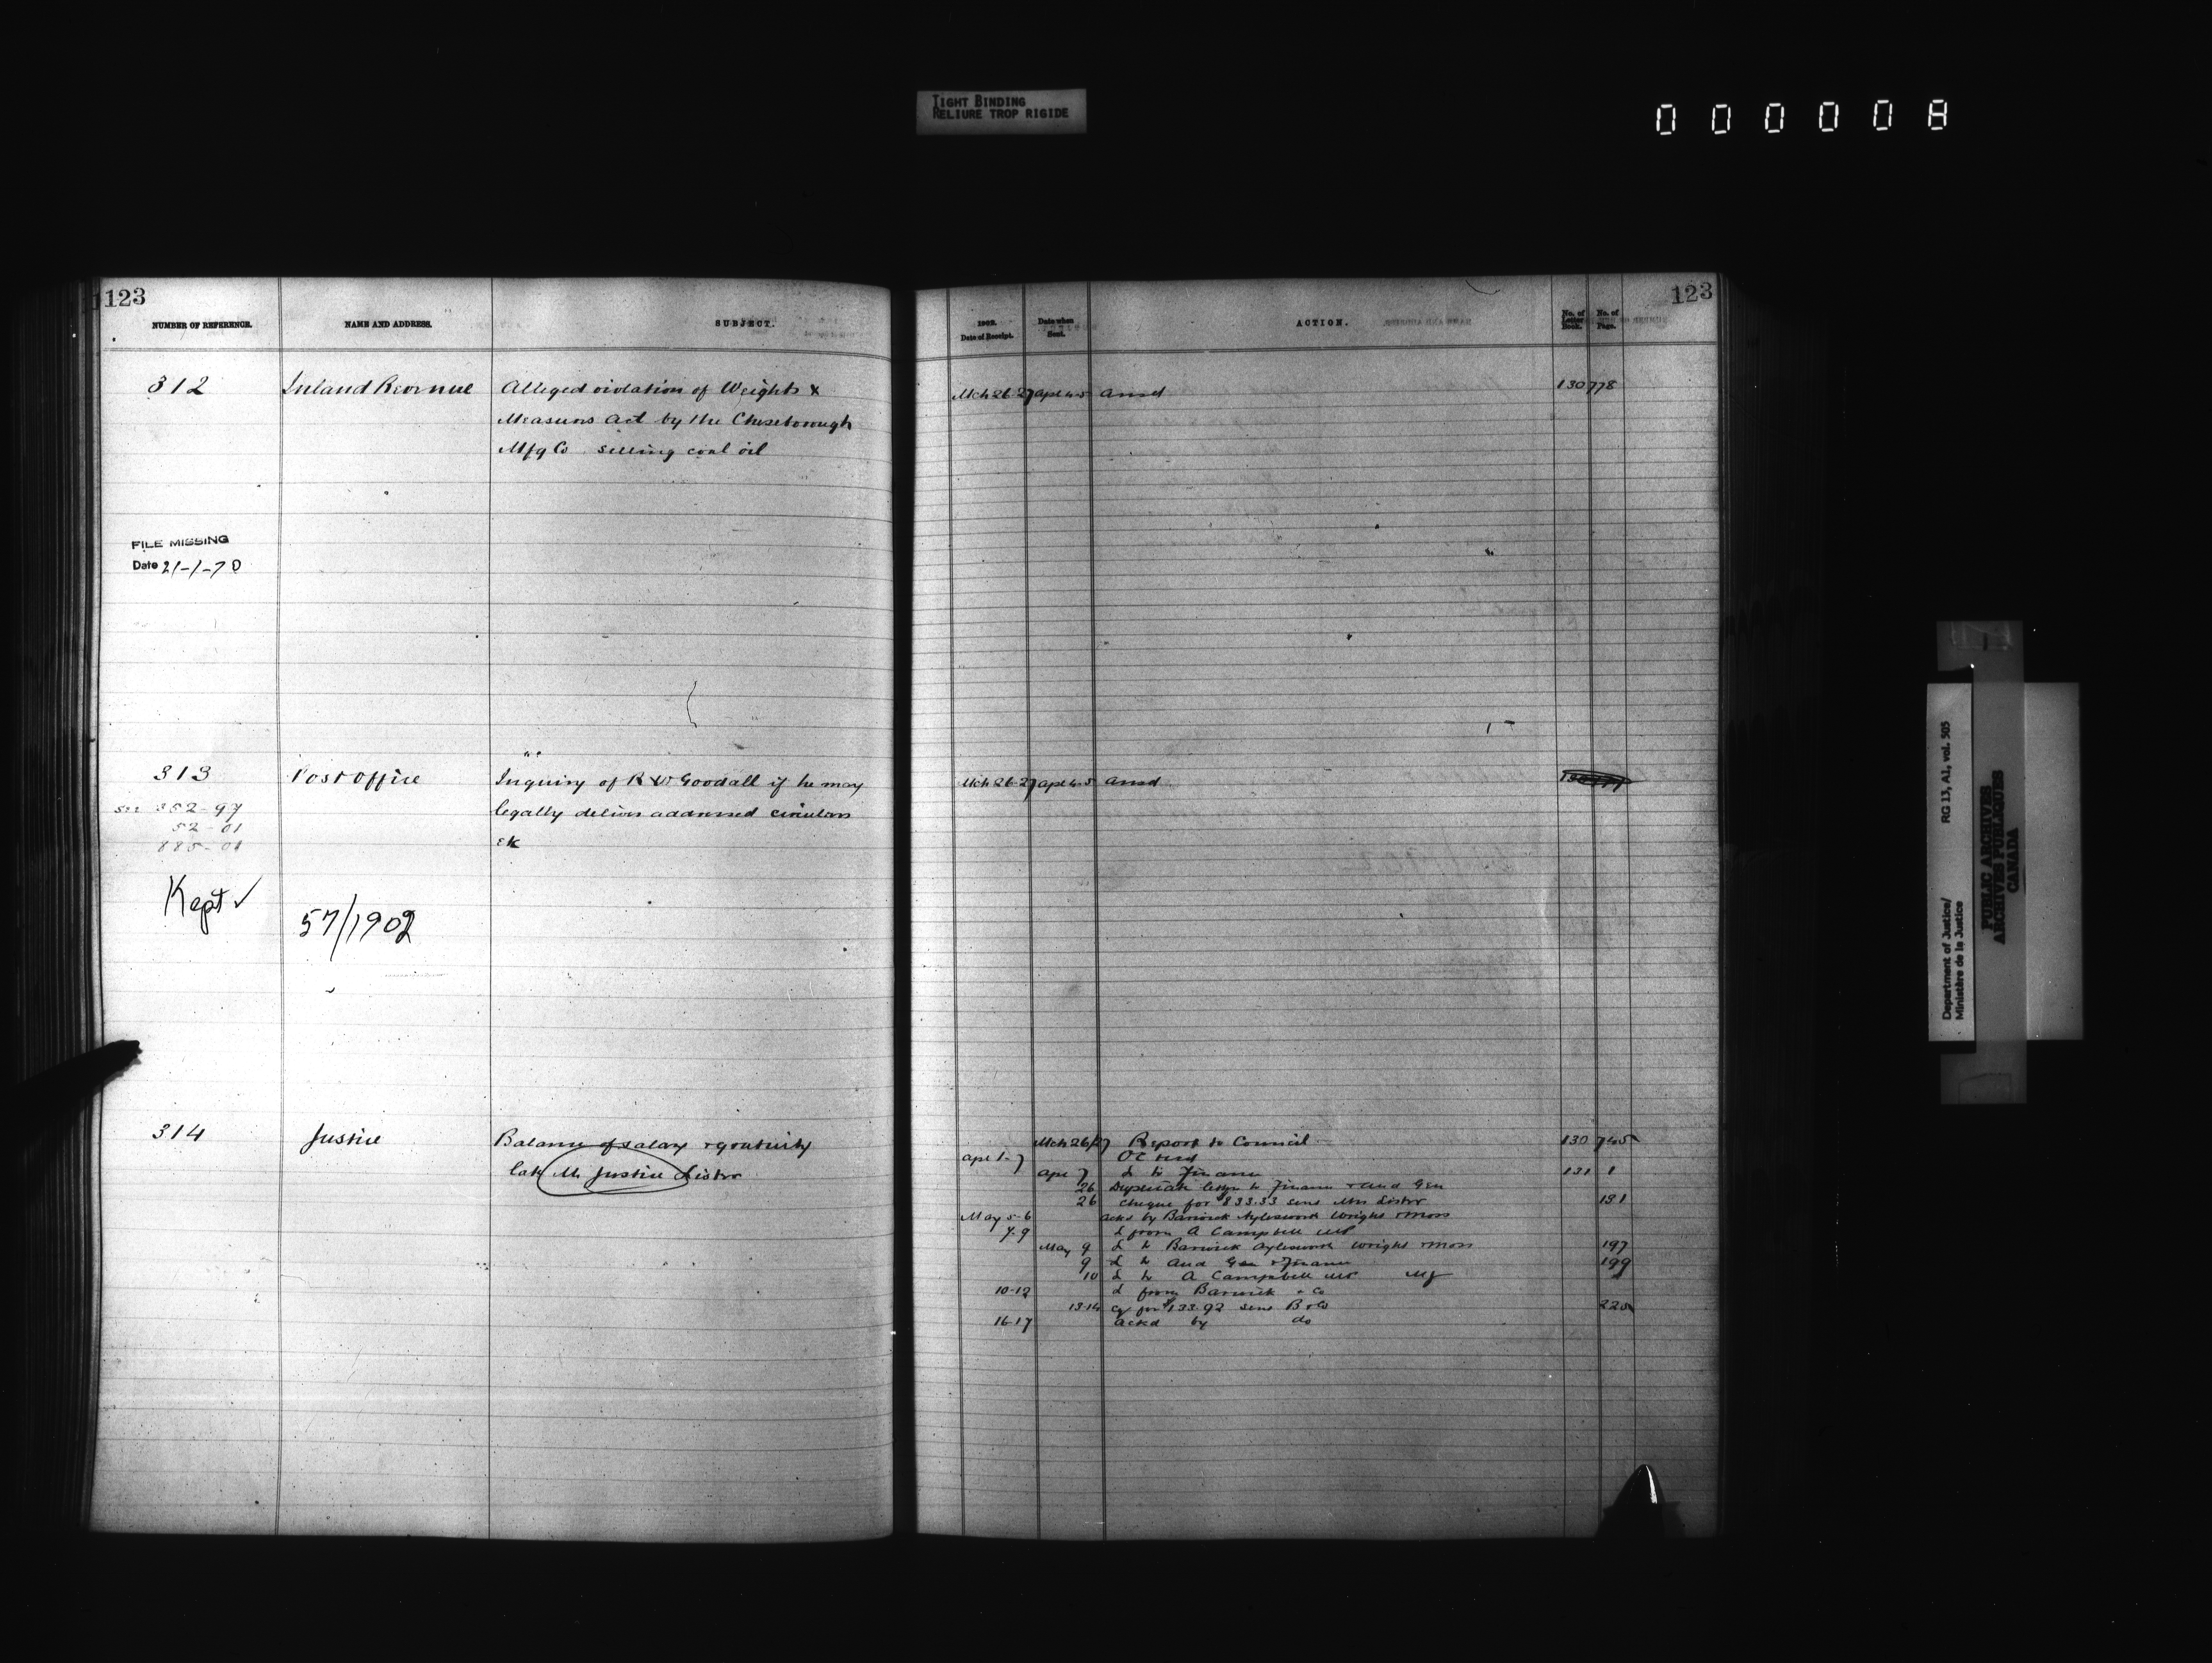 TIGHT BINDING
RELIURE TROP RIGIDE
000008
123
NUMBER OF REFERENCE. NAME AND ADDRESS. SUBJECT.
312 Inland Revenue Alleged violation of Weights &
Measures Act by the Cheseborough
Mfg Co. selling coal oil
FILE MISSING
Date 21-1-70
313 Post Office Inquiry of R W Goodall if he may
see 352-97 legally deliver addressed circulars
52-01
885-01 etc
Kept ✓
57/1902
314 Justice Balance of salary & gratuity
late Mr Justice Lister
123
1902. Date of Receipt. Date when Sent. ACTION. No. of Letter Book. No. of Page.
Mch 26-27 Apl 4-5 ansd 130 778
Mch 26-27 Apl 4-5 ansd
Mch 26/27 Report to Council 130 745
Apl 1-7 OC recd
Apl 7 L to Finance 131 1
26 Duplicate letter to Finance & Aud Gen
26 Cheque for $833.33 sent Mrs Lister 131
May 5-6 ackd by Barwick Aylesworth Wright & Moss
7-9 L from A Campbell MP
May 9 L to Barwick Aylesworth Wright & Moss 197
9 L to Aud Gen & Finance 199
10 L to A Campbell MP
10-12 L from Barwick & Co
13-14 Cq for $133.92 sent B & Co 225
16-17 ackd by do
Department of Justice/
Ministère de la Justice
RG 13, A1, vol. 505
PUBLIC ARCHIVES
ARCHIVES PUBLIQUES
CANADA